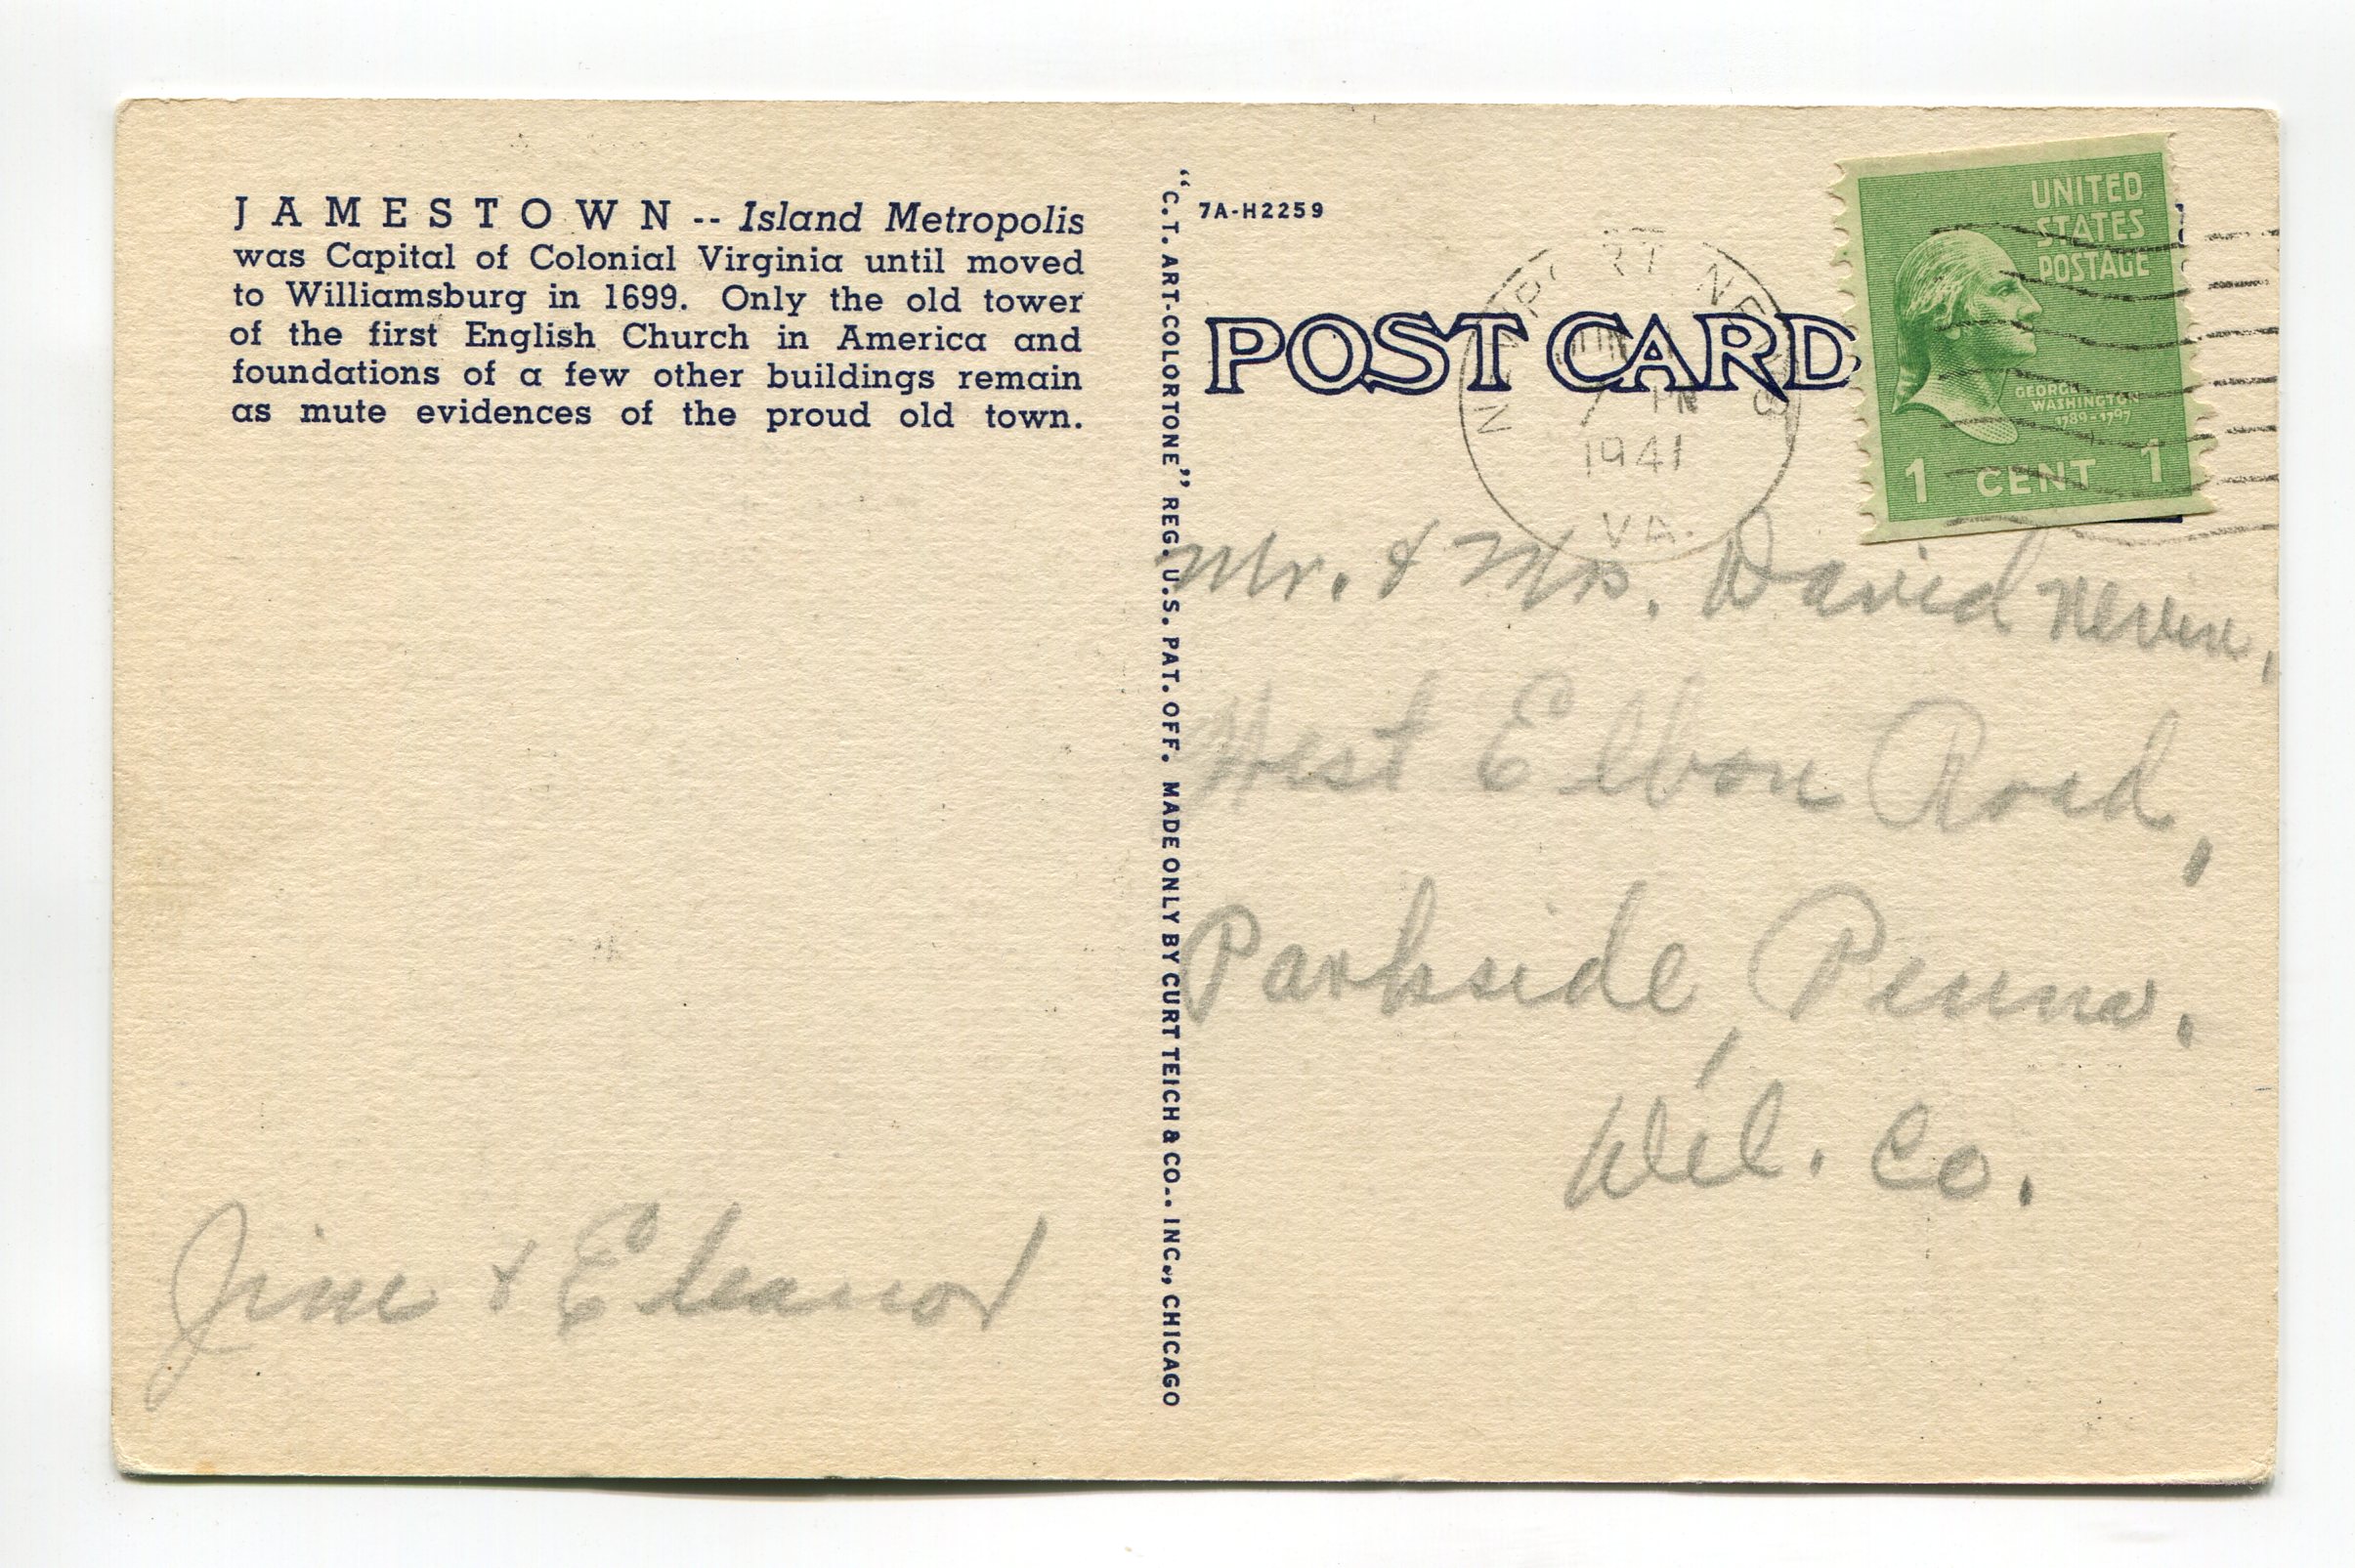 JAMESTOWN -- Island Metropolis
was Capital of Colonial Virginia until moved
to Williamsburg in 1699. Only the old tower
of the first English Church in America and
foundations of a few other buildings remain
as mute evidences of the proud old town.
Jim & Eleanor
"C.T. ART-COLORTONE" REG. U.S. PAT. OFF. MADE ONLY BY CURT TEICH & CO., INC., CHICAGO
7A-H2259
POST CARD
NEWPORT NEWS
7 PM
1941
VA.
UNITED
STATES
POSTAGE
GEORGE
WASHINGTON
1789-1797
1 CENT 1
Mr. & Mrs. David Nevin,
West Elbon Road,
Parkside, Penna.
Del. Co.